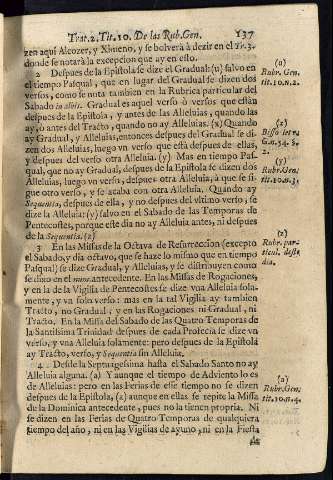 Trat.2. Tit.10. De las Rub. Gen. 137
zen aqui Alcozer, y Ximeno, y se bolverà à dezir en el Tr.3.
donde se notarà la excepcion que ay en esto.
2 Despues de la Epistola se dize el Gradual: (u) salvo en
el tiempo Pasqual, que en lugar del Gradual se dizen dos
versos, como se nota tambien en la Rubrica particular del
Sabado in albis. Gradual es aquel verso ò versos que estàn
despues de la Epistola, y antes de las Alleluias, quando las
ay, ò antes del Tracto, quando no ay Alleluias. (x) Quando
ay Gradual, y Alleluias, entonces despues del Gradual se di-
zen dos Alleluias, luego vn verso que està despues de ellas,
y despues del verso otra Alleluia. (y) Mas en tiempo Pas-
qual, que no ay Gradual, despues de la Epistola se dizen dos
Alleluias, luego vn verso, despues otra Alleluia, à que se si-
gue otro verso, y se acaba con otra Alleluia. Quando ay
Sequentia, despues de ella, y no despues del vltimo verso, se
dize la Alleluia: (y) salvo en el Sabado de las Temporas de
Pentecostes, porque este dia no ay Alleluia antes, ni despues
de la Sequentia. (z)
3 En las Missas de la Octava de Resurreccion (excepto
el Sabado, y dia octavo, que se haze lo mismo que en tiempo
Pasqual) se dize Gradual, y Alleluias, y se distribuyen como
se dixo en el num. antecedente. En las Missas de Rogaciones,
y en la de la Vigilia de Pentecostes se dize vna Alleluia sola-
mente, y vn solo verso: mas en la tal Vigilia ay tambien
Tracto, no Gradual, y en las Rogaciones ni Gradual, ni
Tracto. En la Missa del Sabado de las Quatro Temporas de
la Santissima Trinidad despues de cada Profecia se dize vn
verso, y vna Alleluia solamente: pero despues de la Epistola
ay Tracto, verso, y Sequentia sin Alleluia.
4 Desde la Septuagessima hasta el Sabado Santo no ay
Alleluia alguna. (a) Y aunque el tiempo de Adviento lo es
de Alleluia: pero en las Ferias de esse tiempo no se dizen
despues de la Epistola, (a) aunque en ellas se repite la Missa
de la Dominica antecedente, pues no la tienen propria. Ni
se dizen en las Ferias de Quatro Temporas de qualquiera
tiempo del año, ni en las Vigilias de ayuno, ni en la Fiesta
de
(u)
Rubr. Gen.
tit.10.n.2.
(x)
(y)
Rubr. Gen.
tit.10.n.3.
(z)
Rubr. par-
dia.
(a)
Rubr. Gen.
tit.10.n.4.